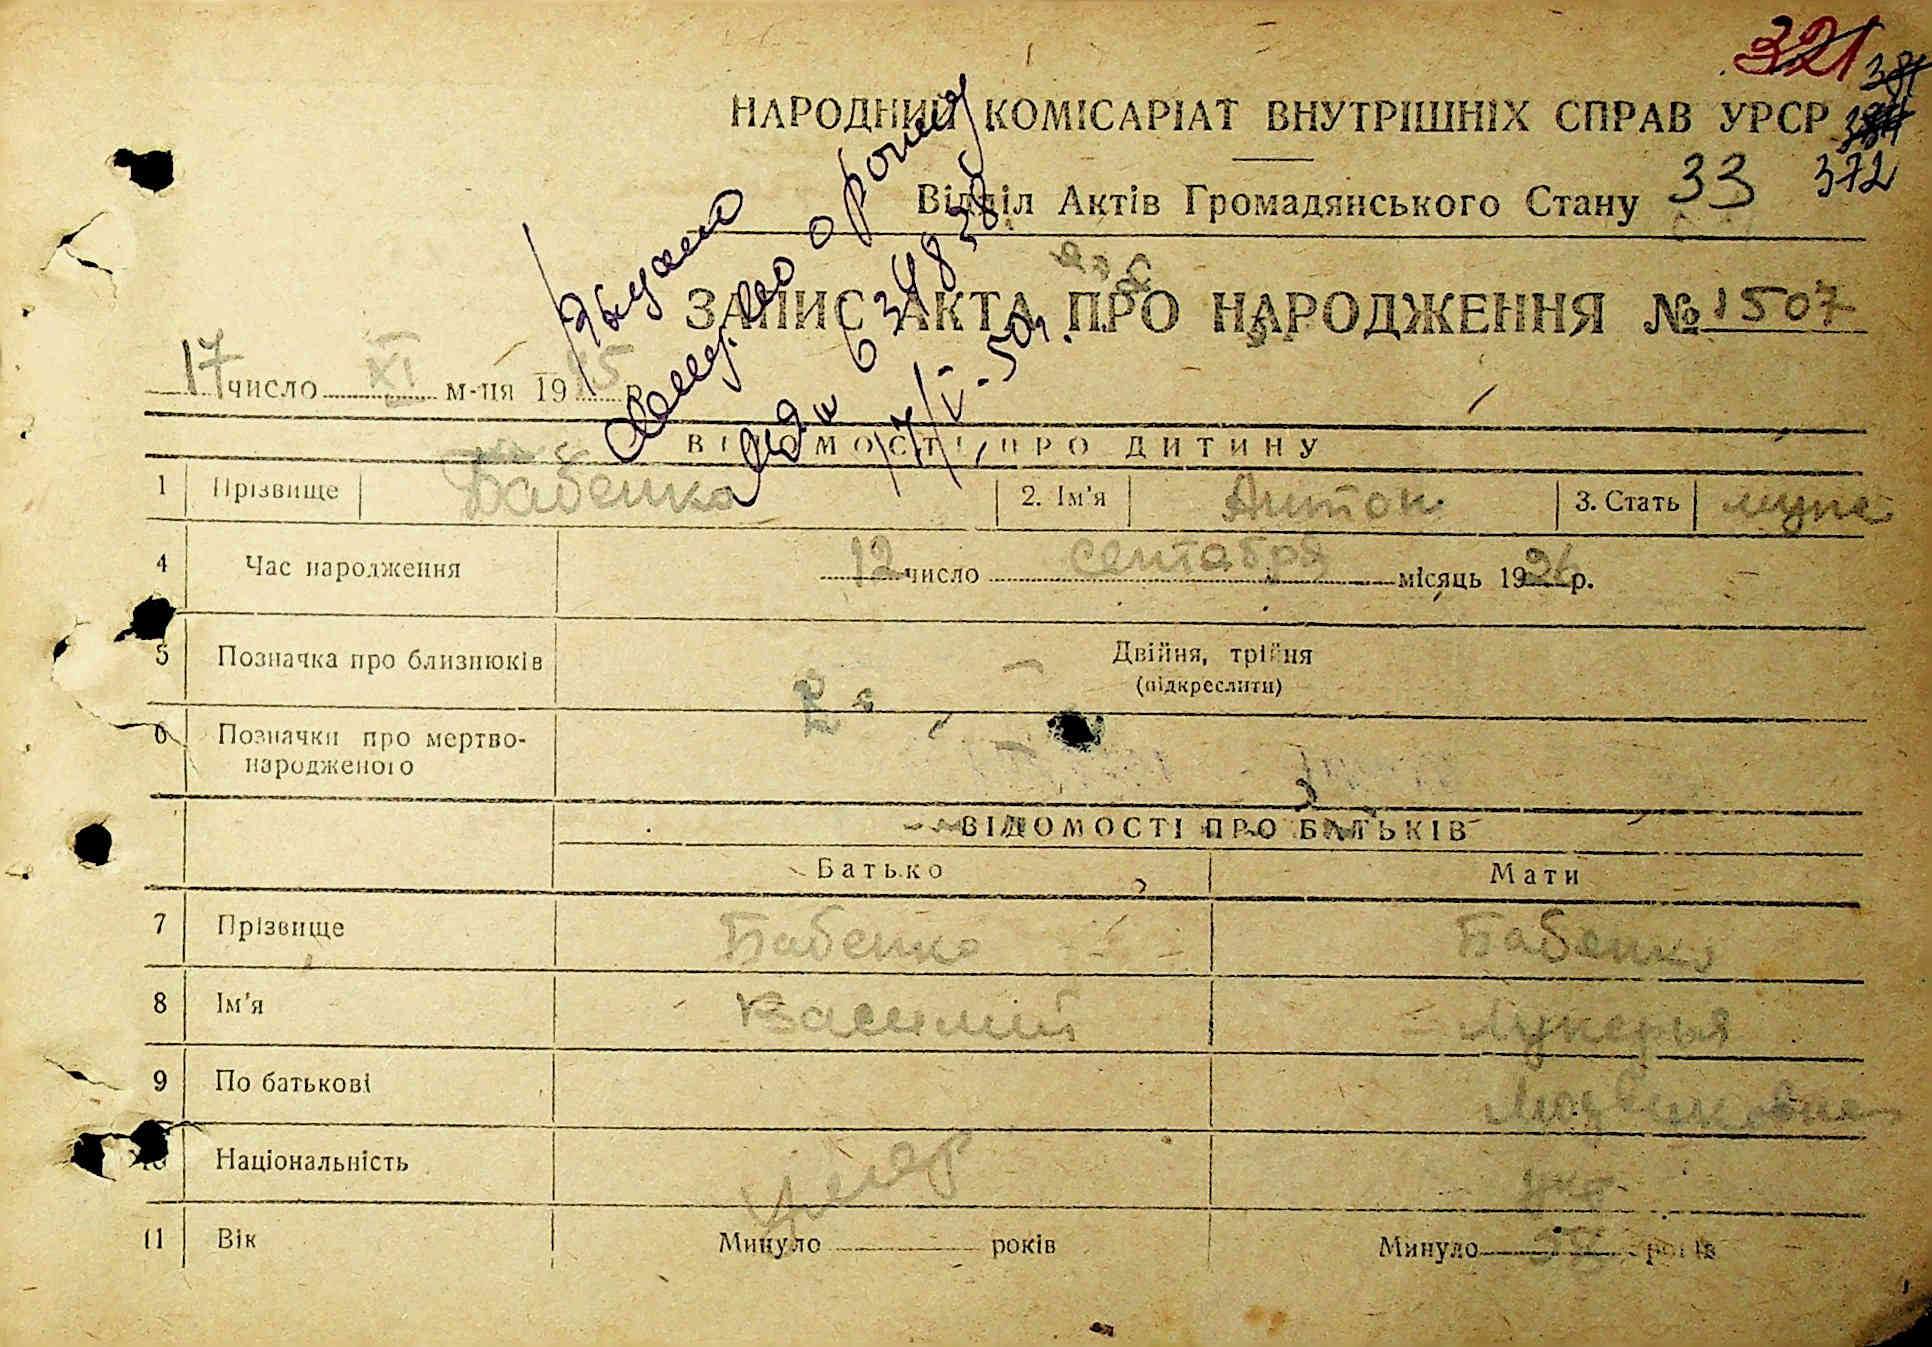 321
381
381
НАРОДНИЙ КОМІСАРІАТ ВНУТРІШНІХ СПРАВ УРСР
372
Відділ Актів Громадянського Стану 33
ЗАПИС АКТА ПРО НАРОДЖЕННЯ № 1507
17 число XI м-ця 1945 р.
ВІДОМОСТІ ПРО ДИТИНУ
1 Прізвище Бабенко 2. Ім'я Антон 3. Стать муже
4 Час народження 12 число сентября місяць 1926 р.
5 Позначка про близнюків Двійня, трійня
(підкреслити)
6 Позначки про мертво-
народженого
ВІДОМОСТІ ПРО БАТЬКІВ
Батько Мати
7 Прізвище Бабенко Бабенко
8 Ім'я Василий Лукерья
9 По батькові
10 Національність умер
11 Вік Минуло років Минуло 58 років